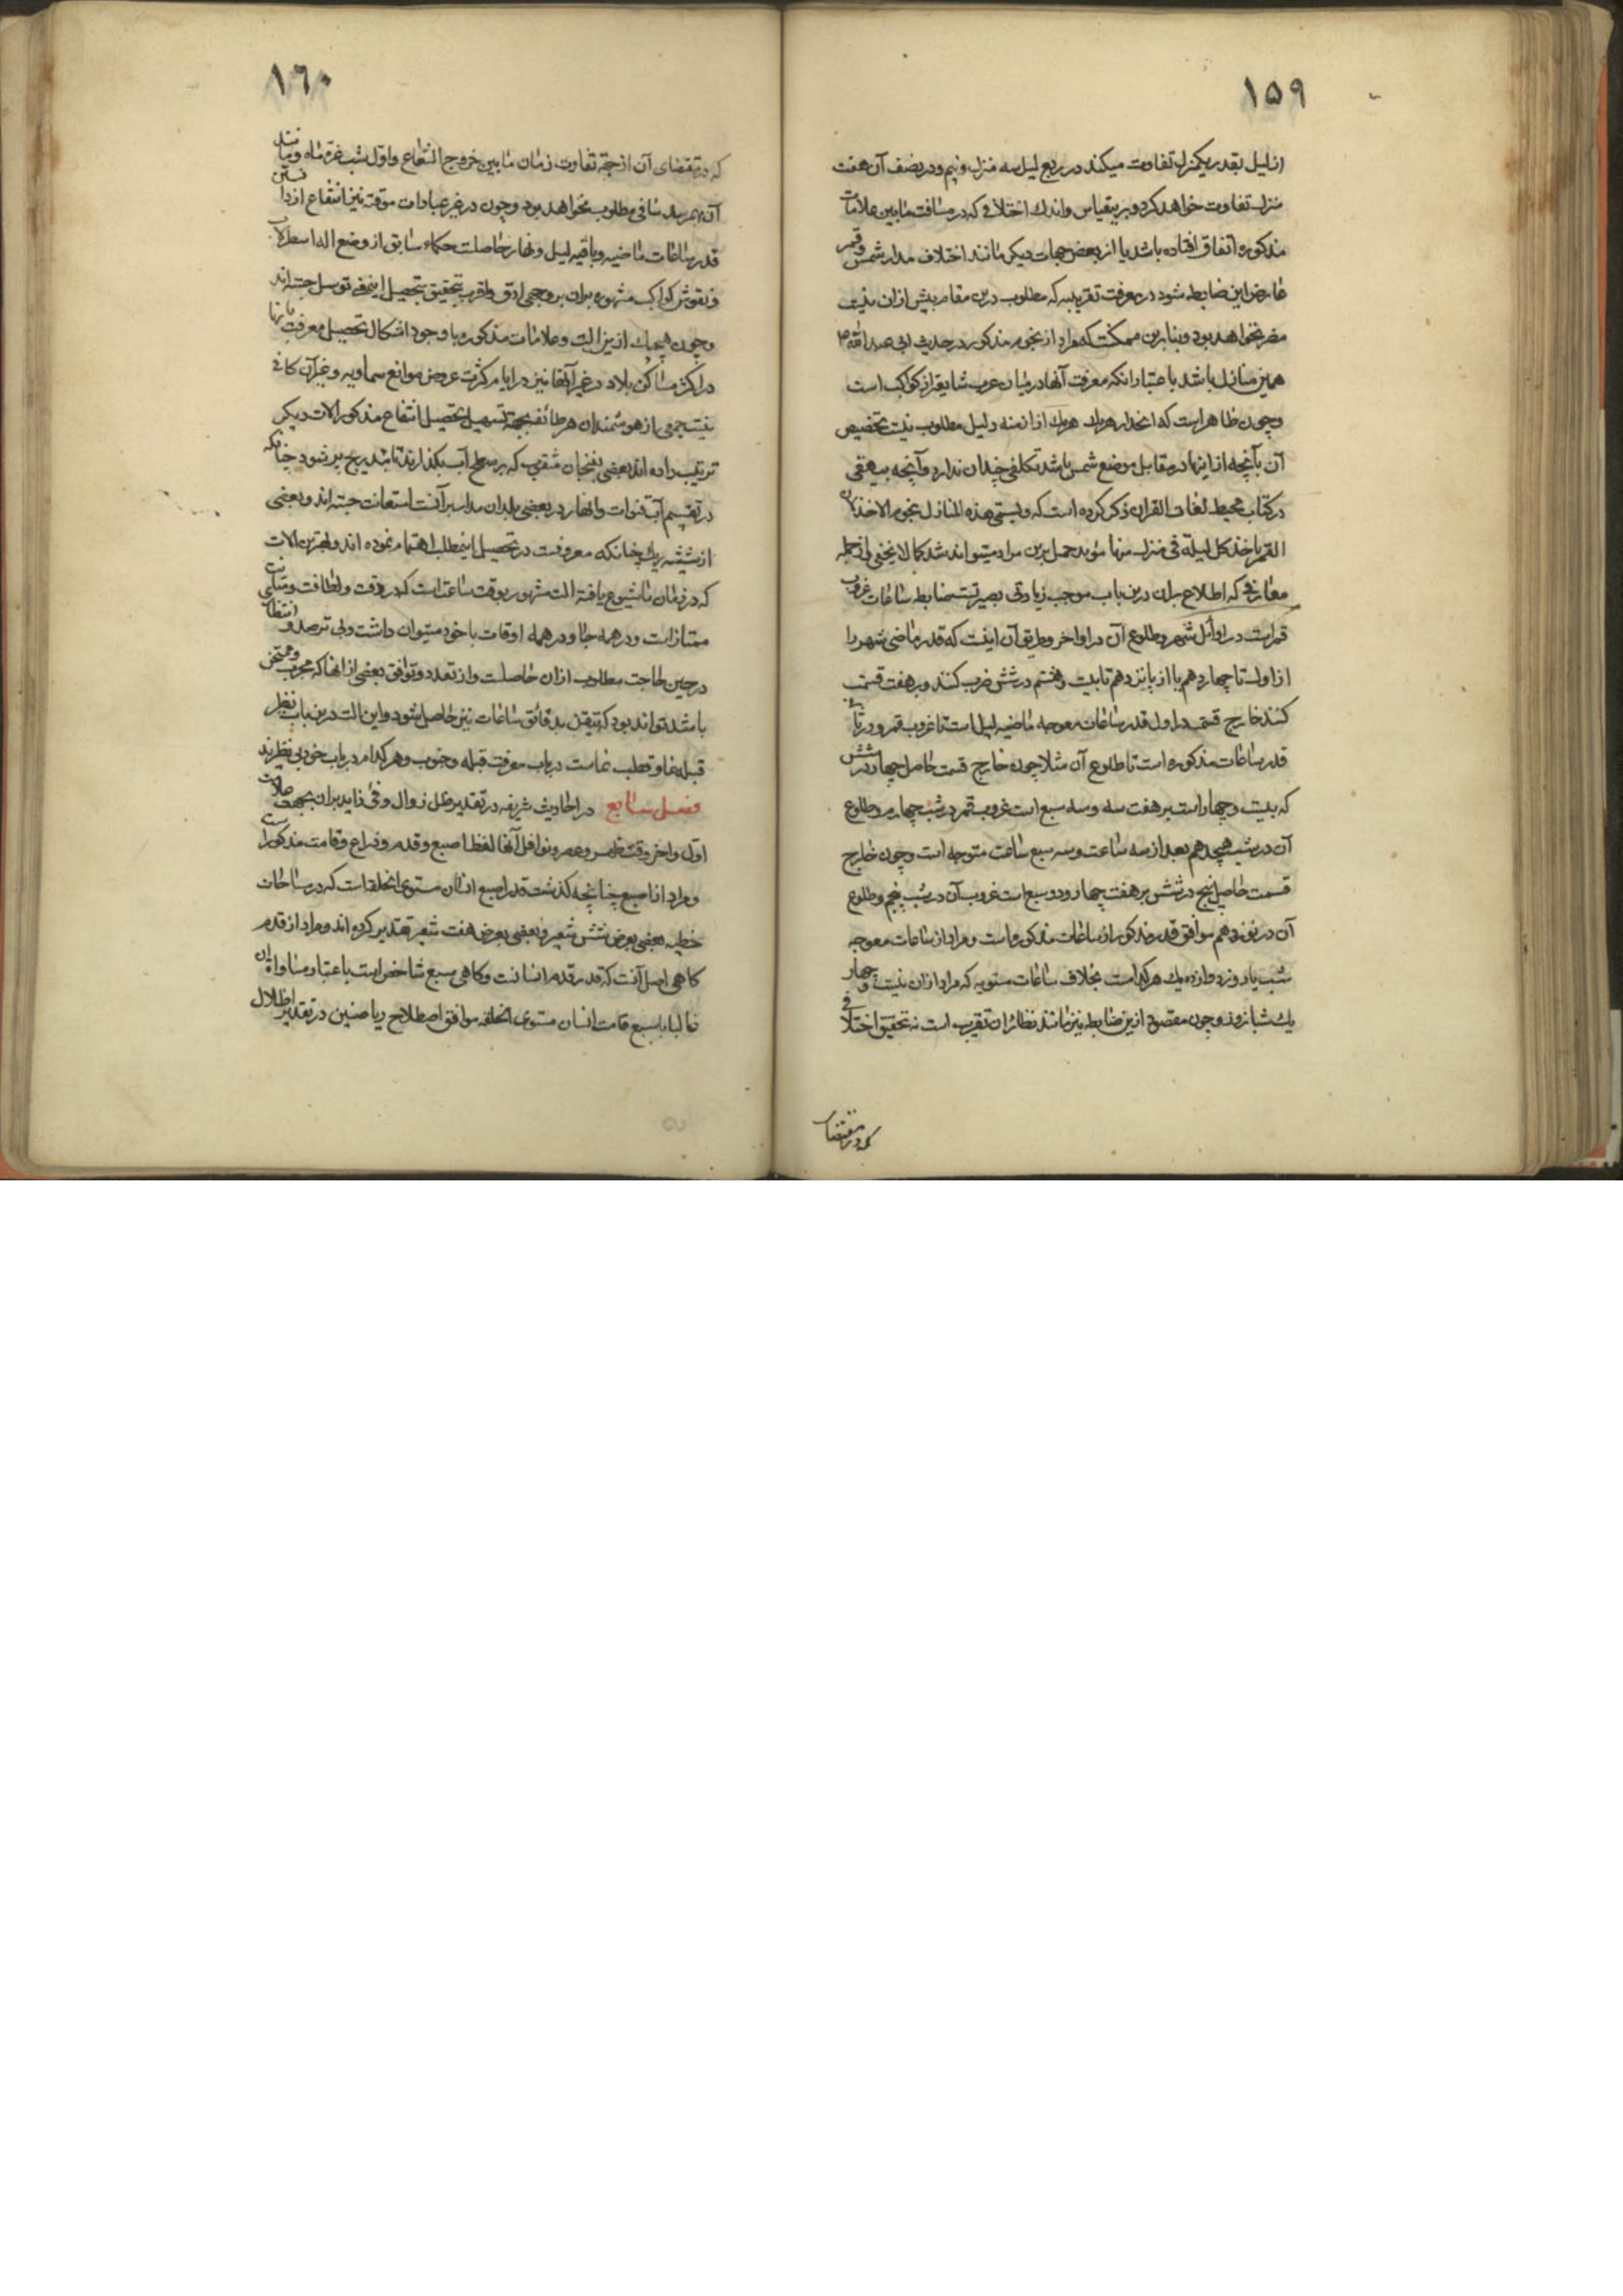 ۱۵۹
از لیل بقدر یکمنزل تفاوت میکند در ربع لیل سه منزل و نیم و در نصف آن هفت
منزل تفاوت خواهد کرد و برینقیاس و اندک اختلافی که در مسافت مابین علامات
مذکوره اتفاق افتاده باشد یا از بعض جهات دیگر مانند اختلاف مدار شمس و قمر
عارض این ضابطه شود در معرفت تقریبیه که مطلوب درین مقام بیش از ان نیست
مضر نخواهد بود و بنابرین ممکنست که مراد از نجوم مذکور در حدیث ابی عبدالله ع
همین منازل باشد باعتبار انکه معرفت آنها در میان عرب شایعتر از کواکب است
و چون ظاهر است که انحدار هر یک هر یک از ازمنه دلیل مطلوب نیست تخصیص
آن بآنچه از اینها در مقابل موضع شمس باشد تکلفی چندان ندارد و آنچه بیهقی
در کتاب محیط لغات القران ذکر کرده است که و لیسمی هذه المنازل نجوم الاخذ لان
القمر یاخذ کل لیلة فی منزل منها مؤید حمل برین مراد میتواند شد کما لا یخفی و از جمله
معارفی که اطلاع بران درین باب موجب زیادتی بصیرتست ضابطه ساعات غروب
قمر است در اوائل شهر و طلوع آن در اواخر و طریق آن اینست که قدر ماضی شهر را
از اول تا چهاردهم یا از پانزدهم تا بیست و هشتم در شش ضرب کنند و بر هفت قسمت
کنند خارج قسمت در اول قدر ساعات معوجه ماضیه لیل است تا غروب قمر و در ثانی
قدر ساعات مذکوره است تا طلوع آن مثلا چون خارج قسمت حاصل چهار در شش
که بیست و چهار است بر هفت سه و سه سبع است غروب قمر در شب چهارم و طلوع
آن در شب هیجدهم بعد از سه ساعت و سه سبع ساعت متوجه است و چون خارج
قسمت حاصل پنج در شش بر هفت چهار و دو سبع است غروب آن در شب پنجم و طلوع
آن در نوزدهم موافق قدر مذکور از ساعات مذکوره است و مراد از ساعات معوجه
شب یا روز دوازده یک هر کدام است بخلاف ساعات مستویه که مراد از ان بیست و چهار
یک شبانروز و چون مقصود ازین ضابطه نیز مانند نظائر ان تقریب است نه تحقیق اختلافی
که در مقتضای
۱۶۰
که در مقتضای آن از جهة تفاوت زمان مابین خروج الشعاع و اول شب غره ماه و مانند
آن بهمرسد منافی مطلوب نخواهد بود و چون در غیر عبادات موقته نیز انتفاع از دانستن
قدر ساعات ماضیه و باقیه لیل و نهار حاصلست حکماء سابق از وضع اله اسطرلاب
و نقوش کواکب مشهوره بران بر وجهی ادق و اقرب بتحقیق بتحصیل اینمعنی توسل جسته اند
و چون هیچیک ازین الت و علامات مذکوره با وجود اشکال تحصیل معرفت بانها
در اکثر مساکن بلاد و در غیر آنها نیز در ایام کثرت عروض موانع سماویه و غیر آن کافی
نیست جمعی از هوشمندان هر طائفه بجهة تسهیل تحصیل انتفاع مذکور الات دیگر
ترتیب داده اند بعضی بفنجان مثقوب که بر سطح آب بگذارند تا بتدریج پر شود چنانکه
در تقسیم آب قنوات و انهار در بعضی بلدان مدار بر آنست استعانت جسته اند و بعضی
از شیشه ریک چنانکه معروفست در تحصیل اینمطلب اهتمام نموده اند و بهترین الات
که در زمان ما شیوع یافته الت مشهور بوقت ساعت است که در دقت و لطافت و متانت
ممتاز است و در همه جا و در همه اوقات با خود میتوان داشت و بی ترصد و انتظار
در حین حاجت مطلوب از ان حاصلست و از تعدد و توافق بعضی از انها که مجرب و ممتحن
باشد تواند بود که تیقن بدقائق ساعات نیز حاصل شود و این الت درین باب نظیر
قبله نما و قطب نماست در باب معرفت قبله و جنوب و هر کدام در باب خود بی نظیرند
فصل سابع در احادیث شریفه در تقدیر ظل زوال و فئ زاید بران بجهت علامت
اول و اخر وقت ظهر و عصر و نوافل آنها لفظ اصبع و قدم و ذراع و قامت مذکور است
و مراد از اصبع چنانچه گذشت قدر اصبع انسان مستوی الخلقه است که در مساحات
خطیه بعضی بعرض شش شعیر و بعضی بعرض هفت شعیر تقدیر کرده اند و مراد از قدم
گاهی اصل آنست که قدر قدم انسانست و گاهی سبع شاخص است باعتبار مساواة ان
غالبا با سبع قامت انسان مستوی الخلقه موافق اصطلاح ریاضیین در تقدیر اظلال